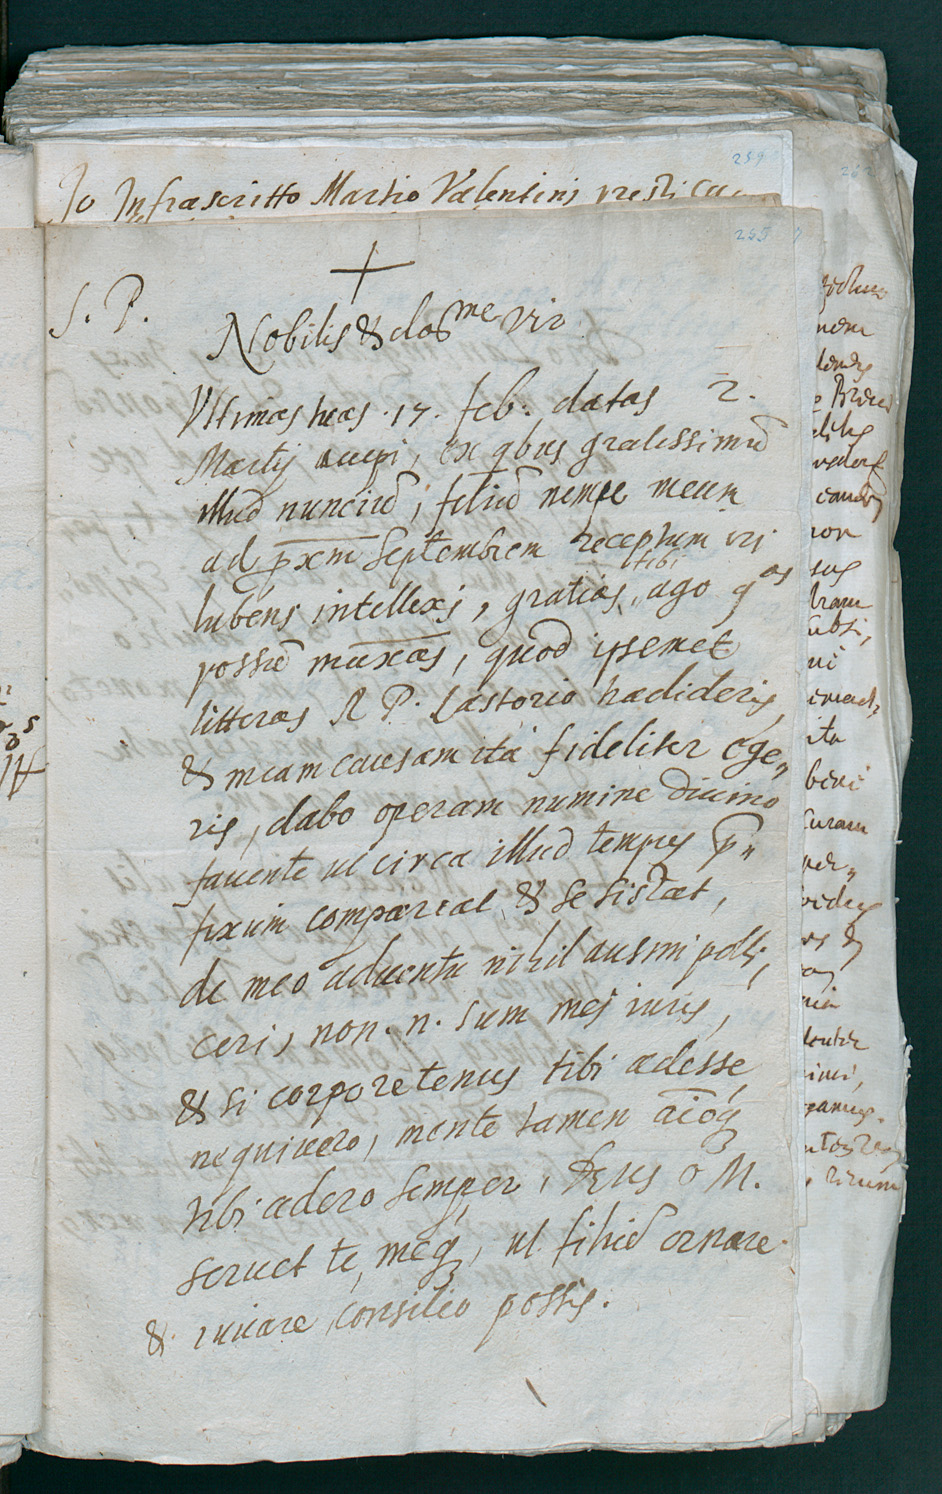 259
Io Infrascritto Martio Valentini
255
S. P.
Nobilis & doc^me vir
Ultimas tuas .17. feb. datas 2.
Martij accepi, ex qbus gratissimũ
illud nunciũ, filiũ nempe meum
ad pxm̃ Septembrem receptum iri
lubens intellexi, gratias tibi ago q^as
possũ maxãs, quod ipsemet
litteras R P. Castorio tradideris,
& meam causam ita fideliter ege„
ris, dabo operam numine divino
favente ut circa illud tempus p̃„
fixum compareat & se sistat,
de meo adventu nihil ausim polli„
ceri, non .n. sum mei iuris,
& si corporetenus tibi adesse
nequivero, mente tamen aĩoq
tibi adero semper, Deus o M.
servet te, meq, ut filiũ ornare
& iuvare consilio possis.